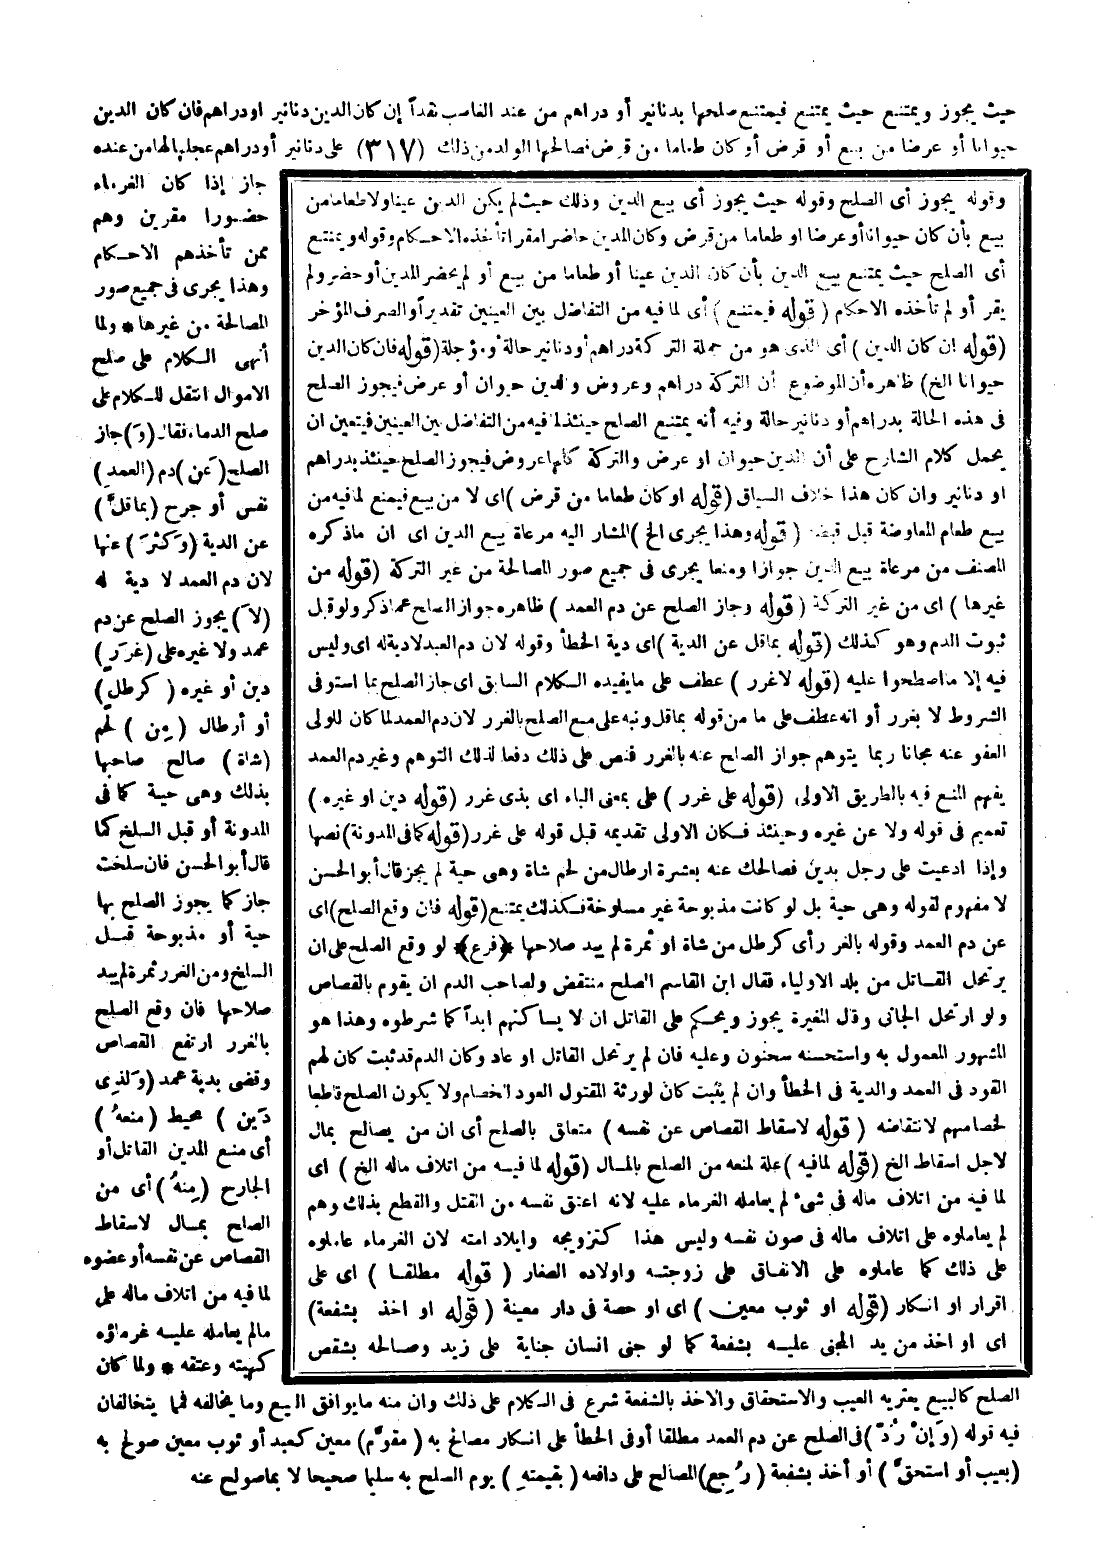 حيث يجوز ويمتنع حيث يمتنع فيمتنع صلحها بدنانير أو دراهم من عند الغاصب نقداً إن كان الدين دنانير او دراهم فان كان الدين
حيوانا أو عرضا من بيع أو قرض أو كان طعاما من قرض فصالحها الولد من ذلك (٣١٧) على دنانير أو دراهم عجلها لها من عنده
جاز إذا كان الغرماء
حضورا مقرين وهم
ممن تأخذهم الاحكام
وهذا يجرى فى جميع صور
المصالحة من غيرها * ولما
أنهى الكلام على صلح
الاموال انتقل للكلام على
صلح الدماء فقال (وَ) جاز
الصلح (عَن) دم (العمدِ)
نفس أو جرح (بماقلَّ)
عن الدية (وَكثرَ) عنها
لان دم العمد لا دية له
(لاَ) يجوز الصلح عن دم
عمد ولا غيره على (غرَرٍ)
دين أو غيره (كرطلٍ)
أو أرطال (مِن) لحم
(شاة) صالح صاحبها
بذلك وهى حية كما فى
المدونة أو قبل السلخ كما
قال أبو الحسن فان سلخت
جاز كما يجوز الصلح بها
حية أو مذبوحة قبل
السلخ ومن الغرر ثمرة لم يبد
صلاحها فان وقع الصلح
بالغرر ارتفع القصاص
وقضى بدية عمد (وَلذِى
دَين) محيط (منعهُ)
أى منع المدين القاتل أو
الجارح (مِنهُ) أى من
الصلح بمال لاسقاط
القصاص عن نفسه أو عضوه
لما فيه من اتلاف ماله على
مالم يعامله عليه غرماؤه
كهبته وعتقه * ولما كان
وقوله يجوز أى الصلح وقوله حيث يجوز أى بيع الدين وذلك حيث لم يكن الدين عينا ولا طعاما من
بيع بأن كان حيوانا أو عرضا او طعاما من قرض وكان المدين حاضرا مقرا تأخذه الاحكام وقوله ويمتنع
أى الصلح حيث يمتنع بيع الدين بأن كان الدين عينا أو طعاما من بيع أو لم يحضر المدين أو حضر ولم
يقر أو لم تأخذه الاحكام (قوله فيمتنع) أى لما فيه من التفاضل بين العينين تقديراً والصرف المؤخر
(قوله ان كان الدين) أى الذى هو من جملة التركة دراهم أو دنانير حالة أو مؤجلة (قوله فان كان الدين
حيوانا الخ) ظاهره أن الموضوع أن التركة دراهم وعروض والدين حيوان أو عرض فيجوز الصلح
فى هذه الحالة بدراهم أو دنانير حالة وفيه أنه يمتنع الصلح حينئذ لما فيه من التفاضل بين العينين فيتعين ان
يحمل كلام الشارح على أن الدين حيوان او عرض والتركة كلها عروض فيجوز الصلح حينئذ بدراهم
او دنانير وان كان هذا خلاف السياق (قوله او كان طعاما من قرض) اى لا من بيع فيمنع لما فيه من
بيع طعام المعاوضة قبل قبضه (قوله وهذا يجرى الخ) المشار اليه مرعاة بيع الدين اى ان ماذكره
المصنف من مرعاة بيع الدين جوازا ومنعا يجرى فى جميع صور المصالحة من غير التركة (قوله من
غيرها) اى من غير التركة (قوله وجاز الصلح عن دم العمد) ظاهره جواز الصلح عما ذكر ولو قبل
ثبوت الدم وهو كذلك (قوله بماقل عن الدية) اى دية الخطأ وقوله لان دم العبد لا دية له اى وليس
فيه إلا ما اصطلحوا عليه (قوله لا غرر) عطف على ما يفيده الكلام السابق اى جاز الصلح بما استوفى
الشروط لا بغرر أو انه عطف على ما من قوله بما قل ونبه على منع الصلح بالغرر لان دم العمد لما كان للولى
العفو عنه مجانا ربما يتوهم جواز الصلح عنه بالغرر فنص على ذلك دفعا لذلك التوهم وغير دم العمد
يفهم المنع فيه بالطريق الاولى (قوله على غرر) على بمعنى الباء اى بذى غرر (قوله دين او غيره)
تعميم فى قوله ولا عن غيره وحينئذ فكان الاولى تقديمه قبل قوله على غرر (قوله كما فى المدونة) نصها
وإذا ادعيت على رجل بدين فصالحك عنه بعشرة ارطال من لحم شاة وهى حية لم يجز قال أبو الحسن
لا مفهوم لقوله وهى حية بل لو كانت مذبوحة غير مسلوخة فكذلك يمتنع (قوله فان وقع الصلح) اى
عن دم العمد وقوله بالغرر أى كرطل من شاة او ثمرة لم يبد صلاحها ﴿فرع﴾ لو وقع الصلح على ان
يرتحل القاتل من بلد الاولياء فقال ابن القاسم الصلح منتقض ولصاحب الدم ان يقوم بالقصاص
ولو ارتحل الجانى وقال المغيرة يجوز ويحكم على القاتل ان لا يساكنهم ابداً كما شرطوه وهذا هو
المشهور المعمول به واستحسنه سحنون وعليه فان لم يرتحل القاتل او عاد وكان الدم قد ثبت كان لهم
القود فى العمد والدية فى الخطأ وان لم يثبت كان لورثة المقتول العود للخصام ولا يكون الصلح قاطعا
لخصامهم لانتقاضه (قوله لاسقاط القصاص عن نفسه) متعلق بالصلح أى ان من يصالح بمال
لاجل اسقاط الخ (قوله لمافيه) علة لمنعه من الصلح بالمال (قوله لما فيه من اتلاف ماله الخ) اى
لما فيه من اتلاف ماله فى شىء لم يعامله الغرماء عليه لانه اعتق نفسه من القتل والقطع بذلك وهم
لم يعاملوه على اتلاف ماله فى صون نفسه وليس هذا كتزويجه وايلاد امته لان الغرماء عاملوه
على ذلك كما عاملوه على الانفاق على زوجته واولاده الصغار (قوله مطلقا) اى على
اقرار او انكار (قوله او ثوب معين) اى او حصة فى دار معينة (قوله او اخذ بشفعة)
اى او اخذ من يد المجنى عليه بشفعة كما لو جنى انسان جناية على زيد وصالحه بشقص
الصلح كالبيع يعتريه العيب والاستحقاق والاخذ بالشفعة شرع فى الكلام على ذلك وان منه مايوافق البيع وما يخالفه فمما يتخالفان
فيه قوله (وَإنْ رُدَّ) فى الصلح عن دم العمد مطلقا أو فى الخطأ على انكار مصالح به (مقوّم) معين كعبد أو ثوب معين صولح به
(بعيب أو استحقَّ) أو أخذ بشفعة (رُجِعَ) المصالح على دافعه (بقيمتهِ) يوم الصلح به سليما صحيحا لا بماصولح عنه